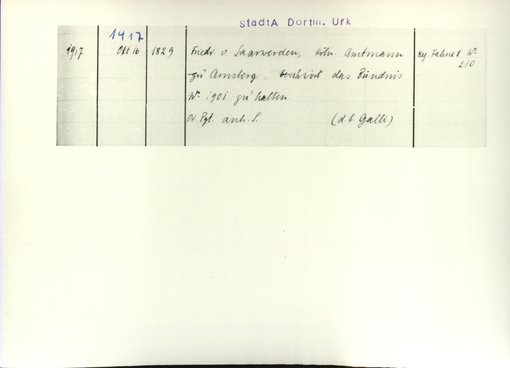 StadtA Dortm. Urk
1417
1917 Okt 16 1829 Friedr. v. Saarwerden, köln. Amtmann
zu Arnsberg, das Bündnis
Nr. 1901 zu halten.
Or Pgt. anh. S. (d b Galli)
Reg. Fahne Nr.
210